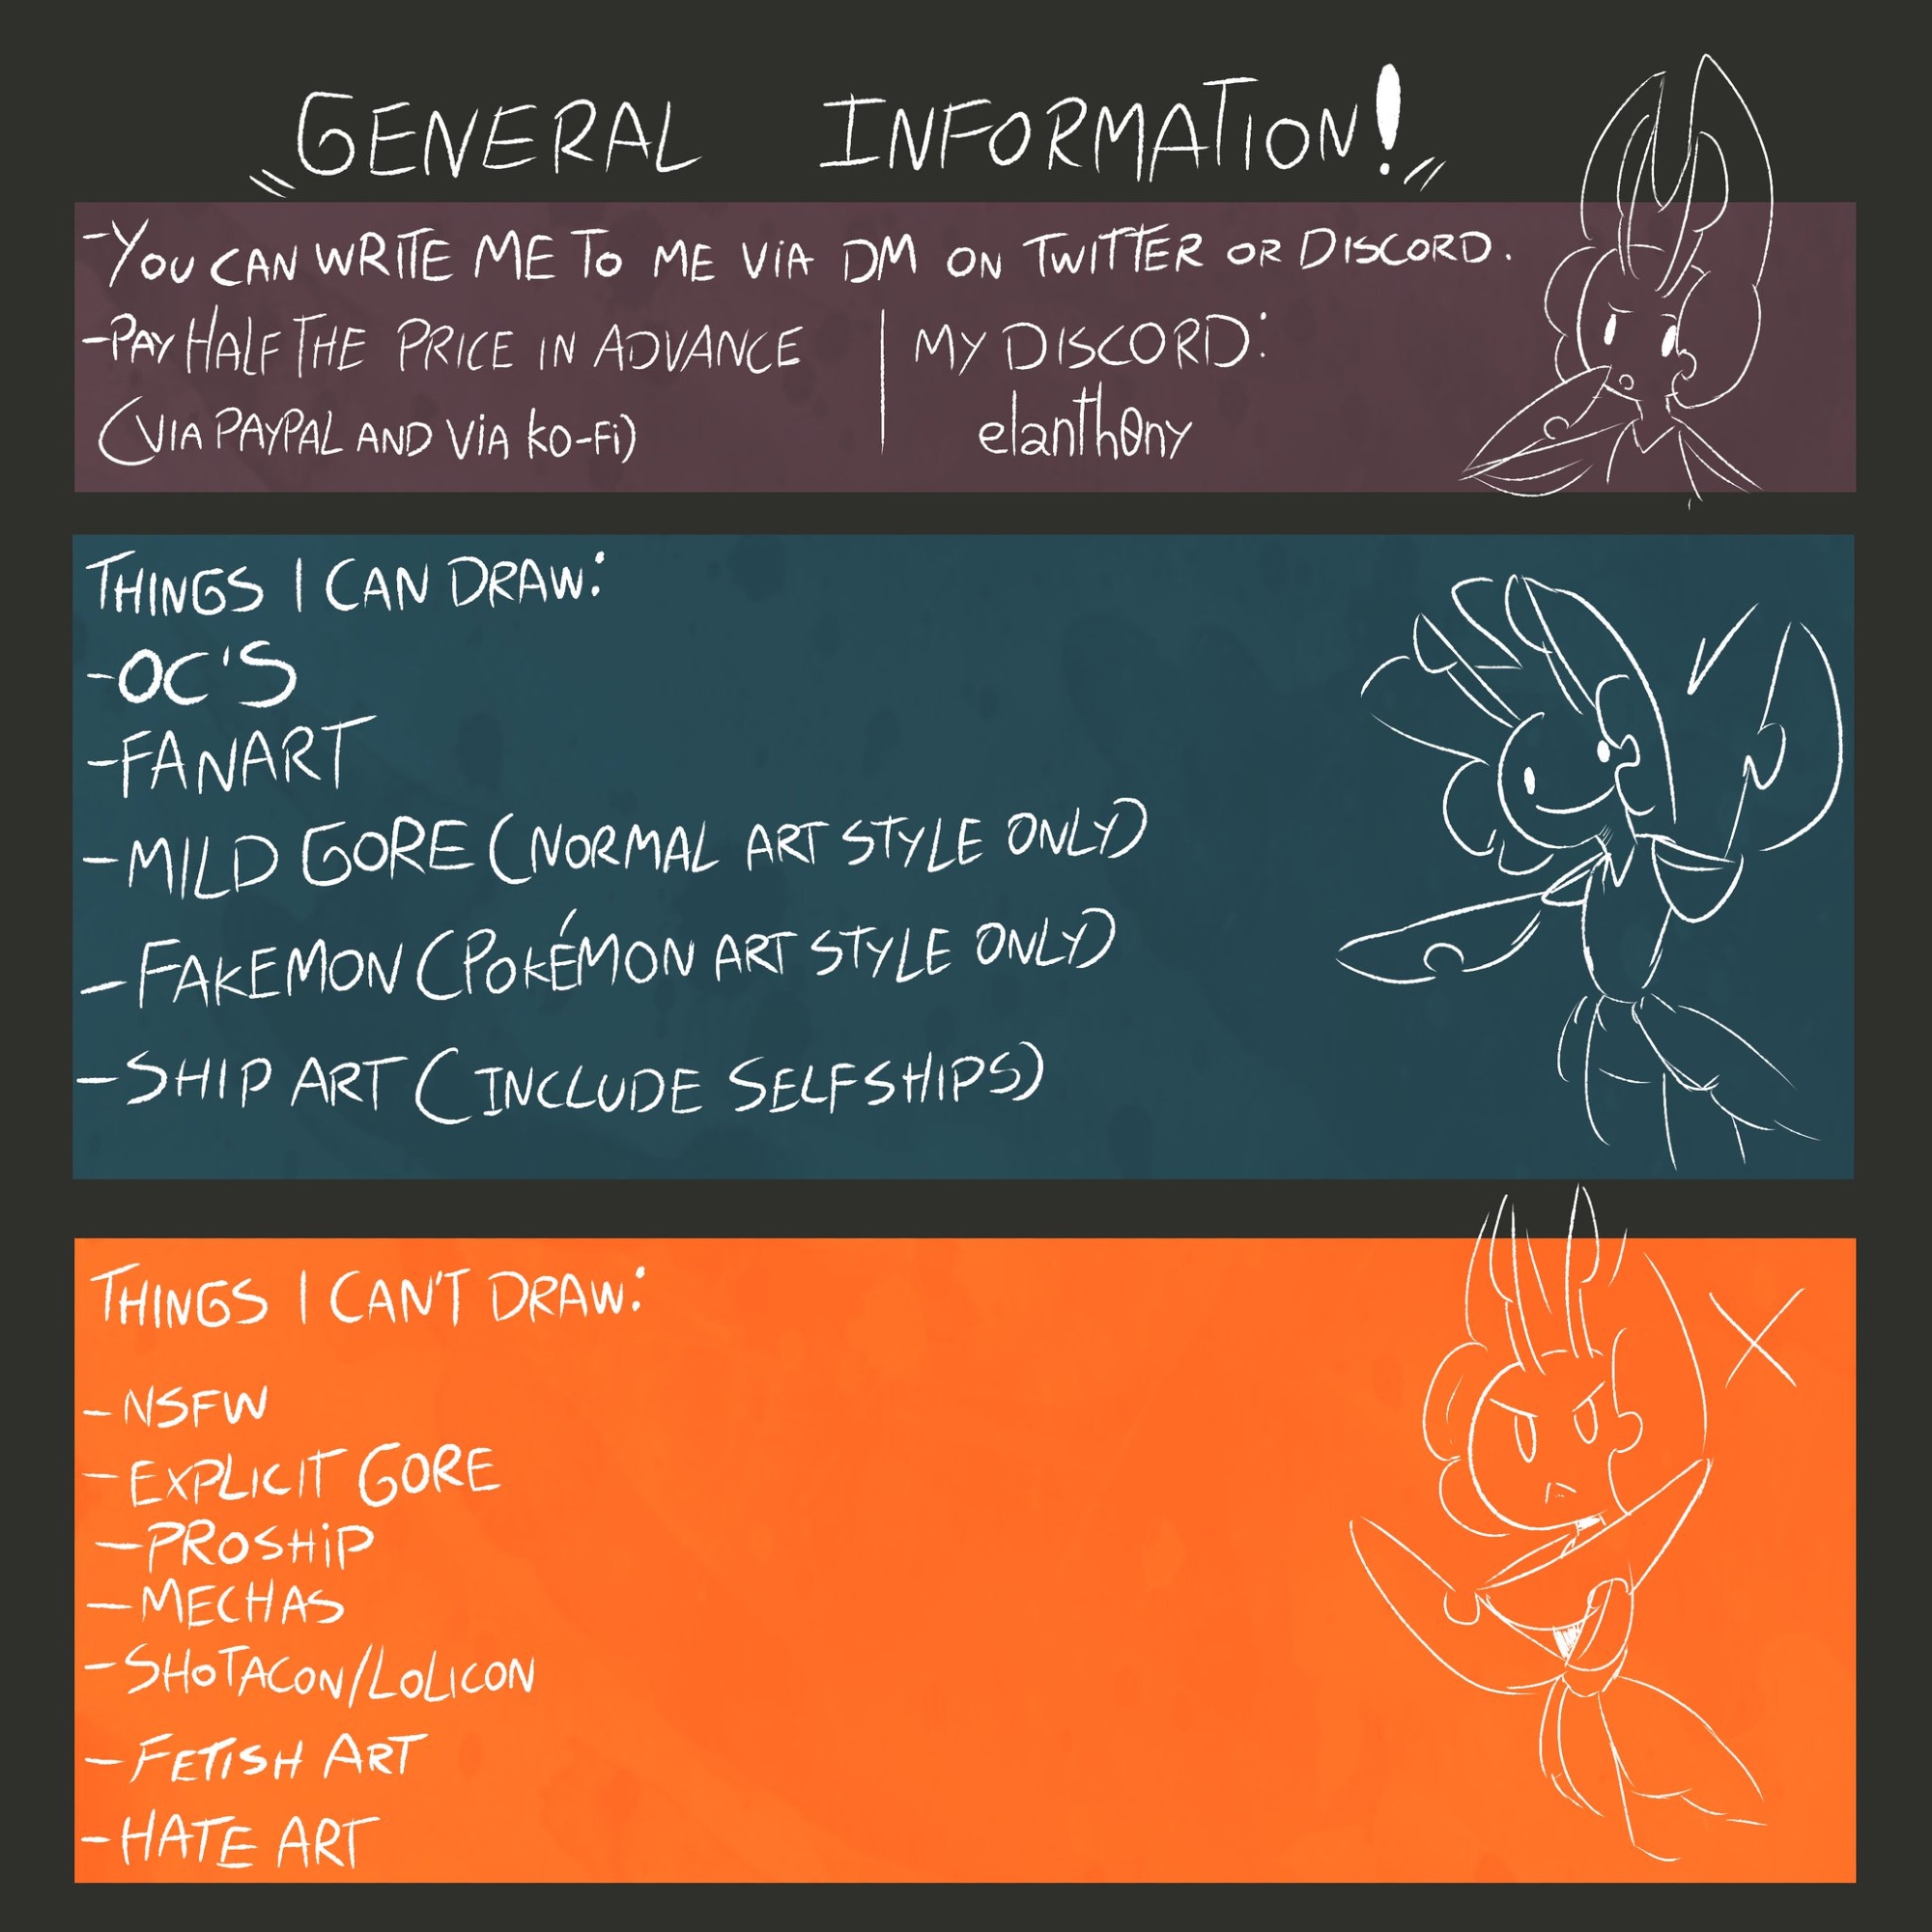 GENERAL INFORMATION!
-YOU CAN WRITE ME TO ME VIA DM ON TWITTER OR DISCORD.
-PAY HALF THE PRICE IN ADVANCE
(VIA PAYPAL AND VIA KO-FI)
MY DISCORD:
elanth0ny
THINGS I CAN DRAW:
-OC'S
-FANART
-MILD GORE (NORMAL ART STYLE ONLY)
-FAKEMON (POKÉMON ART STYLE ONLY)
-SHIP ART (INCLUDE SELFSHIPS)
THINGS I CAN'T DRAW:
-NSFW
-EXPLICIT GORE
-PROSHIP
-MECHAS
-SHOTACON/LOLICON
-FETISH ART
-HATE ART